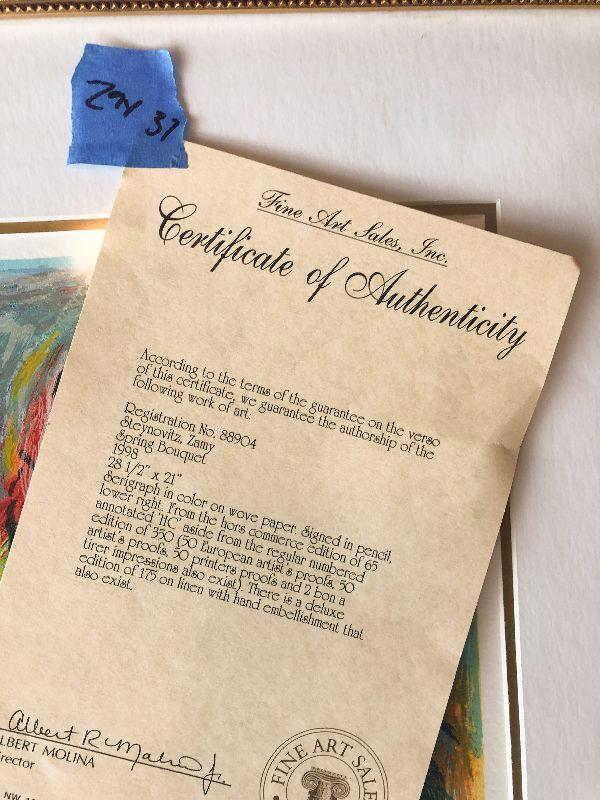 Zay 37
Fine Art Sales, Inc.
Certificate of Authenticity
According to the terms of the guarantee on the verso
of this certificate, we guarantee the authorship of the
following work of art:
Registration No. 88904
Steynovitz, Zamy
Spring Bouquet
1998
28 1/2" x 21"
Serigraph in color on wove paper. Signed in pencil,
lower right. From the hors commerce edition of 65
annotated 'HC' aside from the regular numbered
edition of 350 (50 European artist's proofs, 50
artist's proofs, 50 printers proofs and 2 bon a
tirer impressions also exist). There is a deluxe
edition of 175 on linen with hand embellishment that
also exist.
Albert R Molina Jr.
LBERT MOLINA
irector
NW
FINE ART SALE